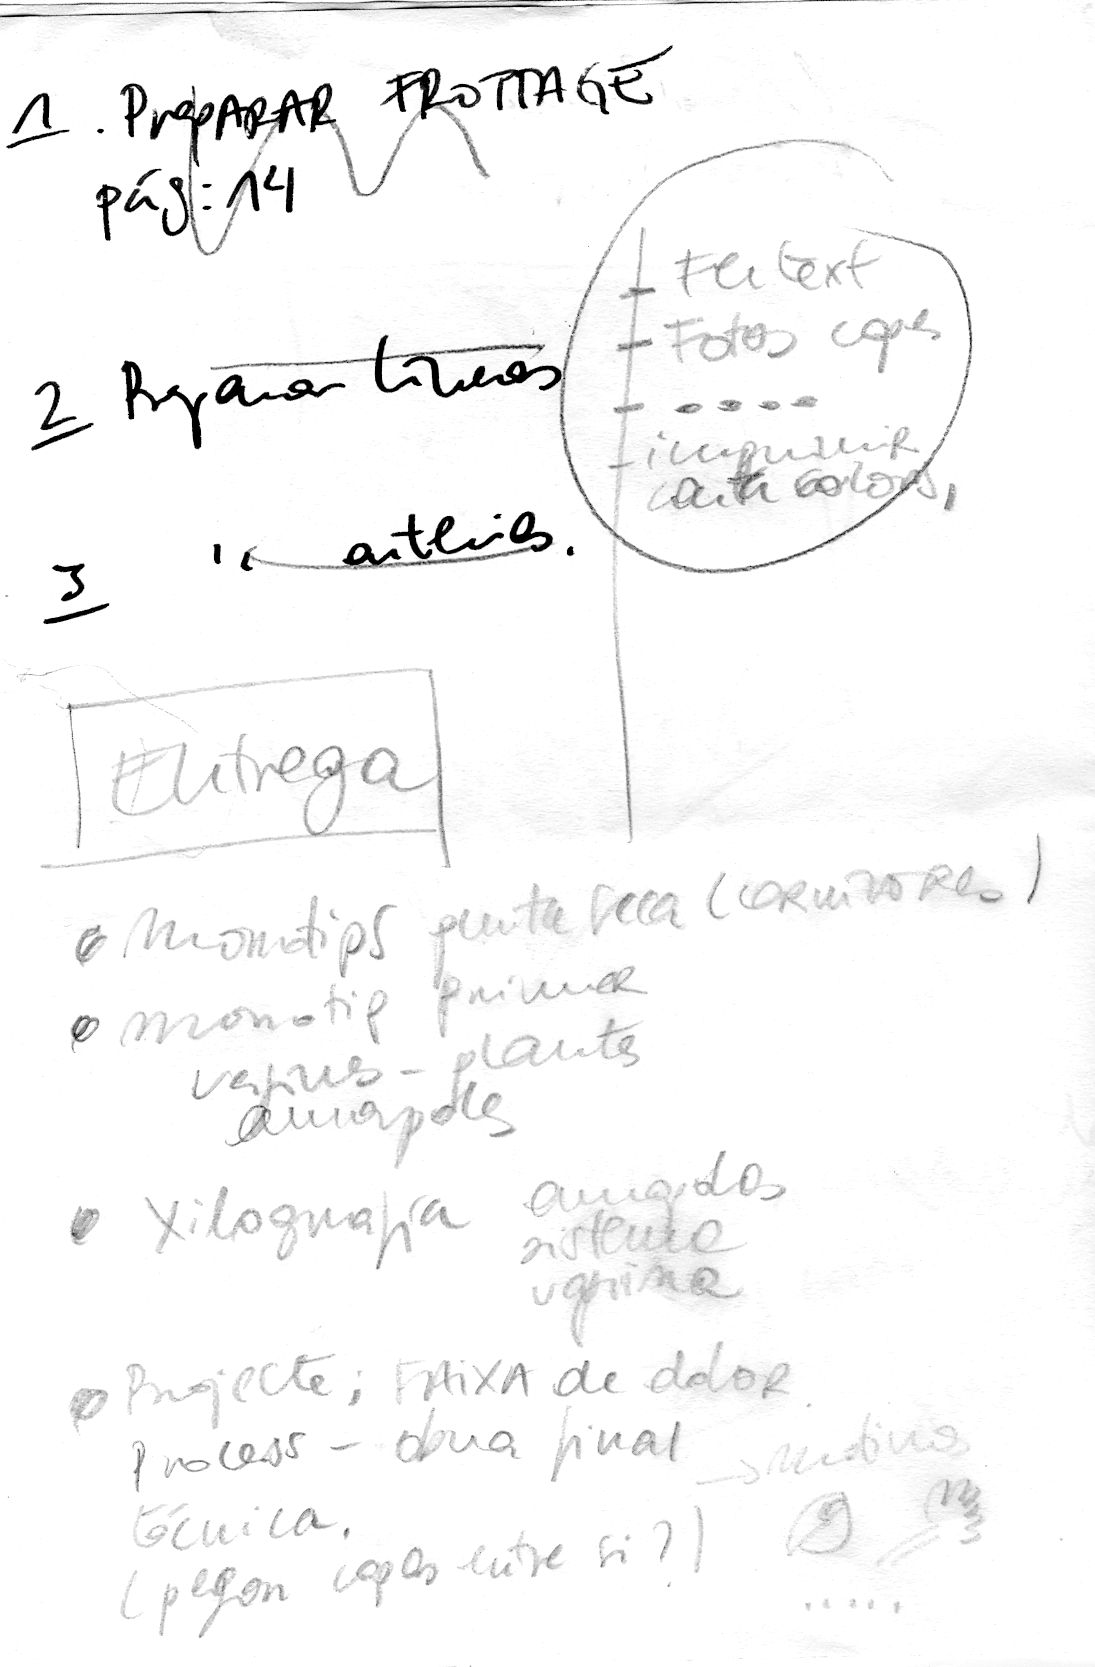 1. PrepARAR FROTTAGE
pág: 14
2 Preparar
3 "
- Fer text
- Fotos capes
- ....
- imprimir
carta colors,
Entrega
Monotips punta seca (CARNÍVORES)
monotip primer
vagines - plantes
amapoles
Xilografia
sistema
vagina
Projecte; FAIXA de dolor
Process - obra final
tècnica.
(pegar capes entre si?)
.....